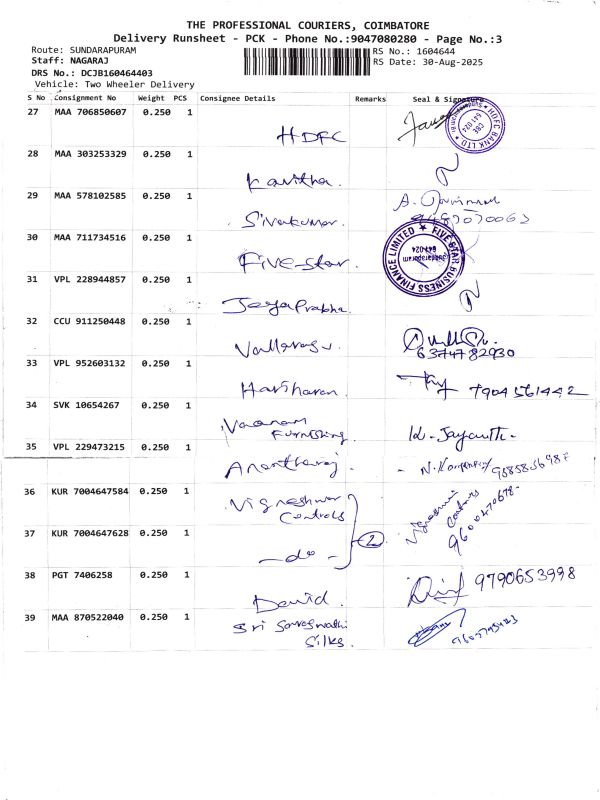 THE PROFESSIONAL COURIERS, COIMBATORE
Delivery Runsheet - PCK - Phone No.:9047080280 - Page No.:3
Route: SUNDARAPURAM
RS No.: 1604644
Staff: NAGARAJ
RS Date: 30-Aug-2025
DRS No.: DCJB160464403
Vehicle: Two Wheeler Delivery
S No Consignment No Weight PCS Consignee Details Remarks Seal & Signature
27 MAA 706850607 0.250 1 HDFC
HDFC BANK LTD
641 024
28 MAA 303253329 0.250 1 Kavitha.
29 MAA 578102585 0.250 1 Sivakumar.
30 MAA 711734516 0.250 1 Five-Star.
FIVE STAR BUSINESS FINANCE LIMITED
641-024
31 VPL 228944857 0.250 1 JeyaPrabha.
32 CCU 911250448 0.250 1
6374782930
33 VPL 952603132 0.250 1 Hariharan.
7904561442
34 SVK 10654267 0.250 1 Vaanam
Furnishing.
Jayanth.
35 VPL 229473215 0.250 1 Anantharaj.
36 KUR 7004647584 0.250 1 Vigneshwar
Controls
37 KUR 7004647628 0.250 1 - do -
2
9600470678
38 PGT 7406258 0.250 1 David.
9790653998
39 MAA 870522040 0.250 1 Sri Sareswathi
Silks.